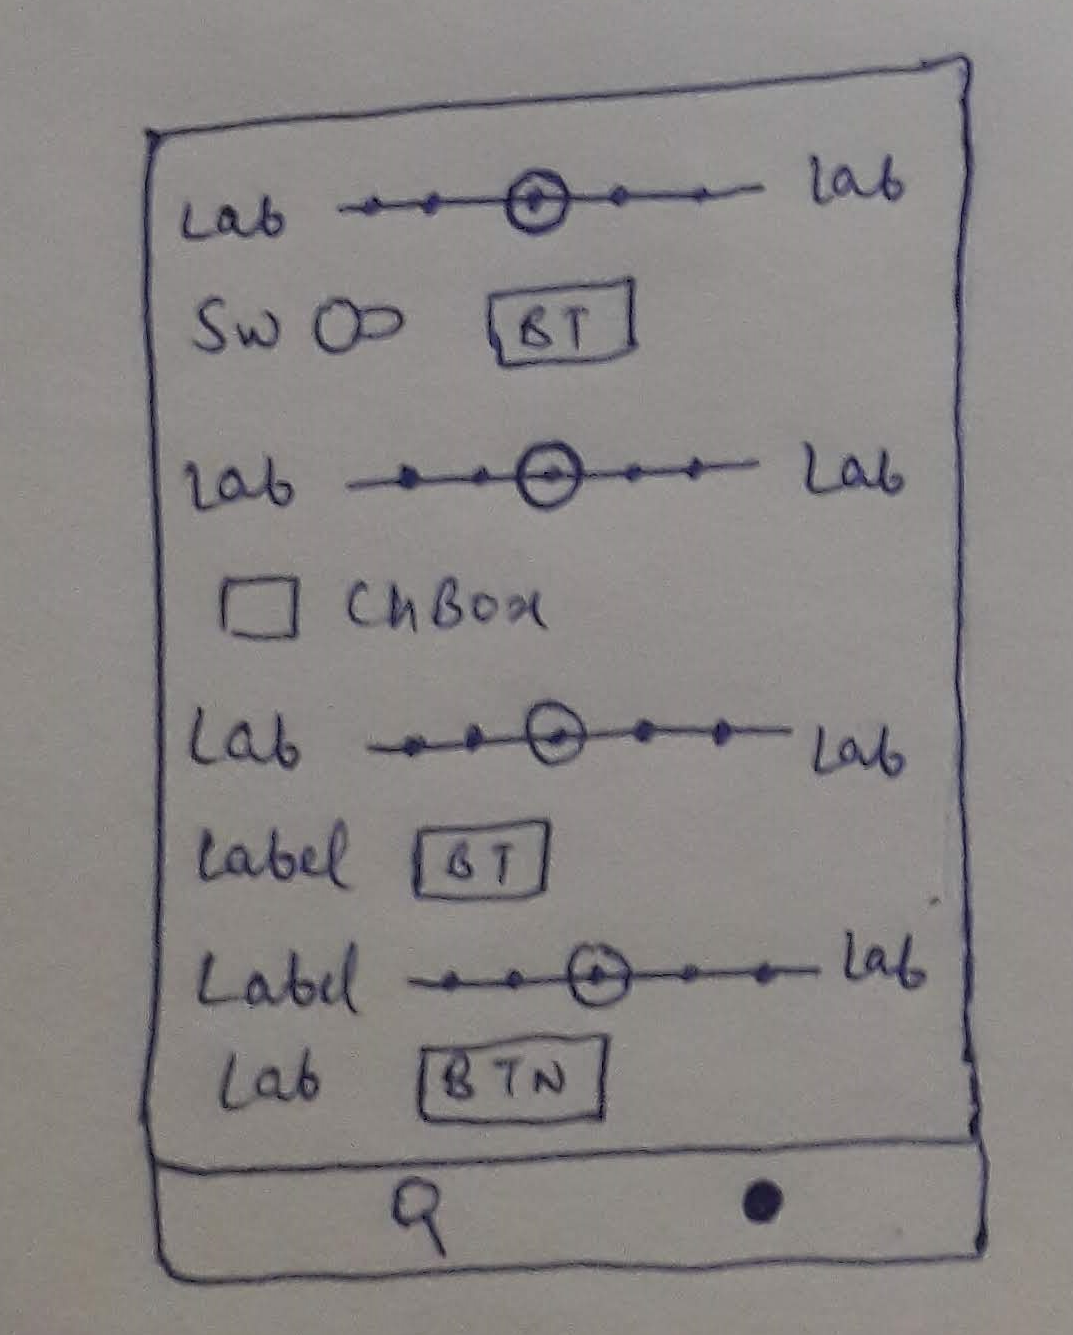 Lab Lab
Sw BT
Lab Lab
ChBox
Lab Lab
Label BT
Label Lab
Lab BTN